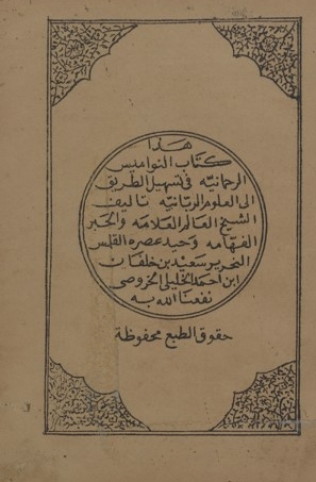 هذا
كتاب النواميس
الرحمانيه في تسهيل الطريق
الى العلوم الربانيه تاليف
الشيخ العالم العلامه والحبر
الفهامه وحيد عصره القدس
النحرير سعيد بن خلفان
ابن احمد الخليلي الخروصي
نفعنا الله به
حقوق الطبع محفوظة